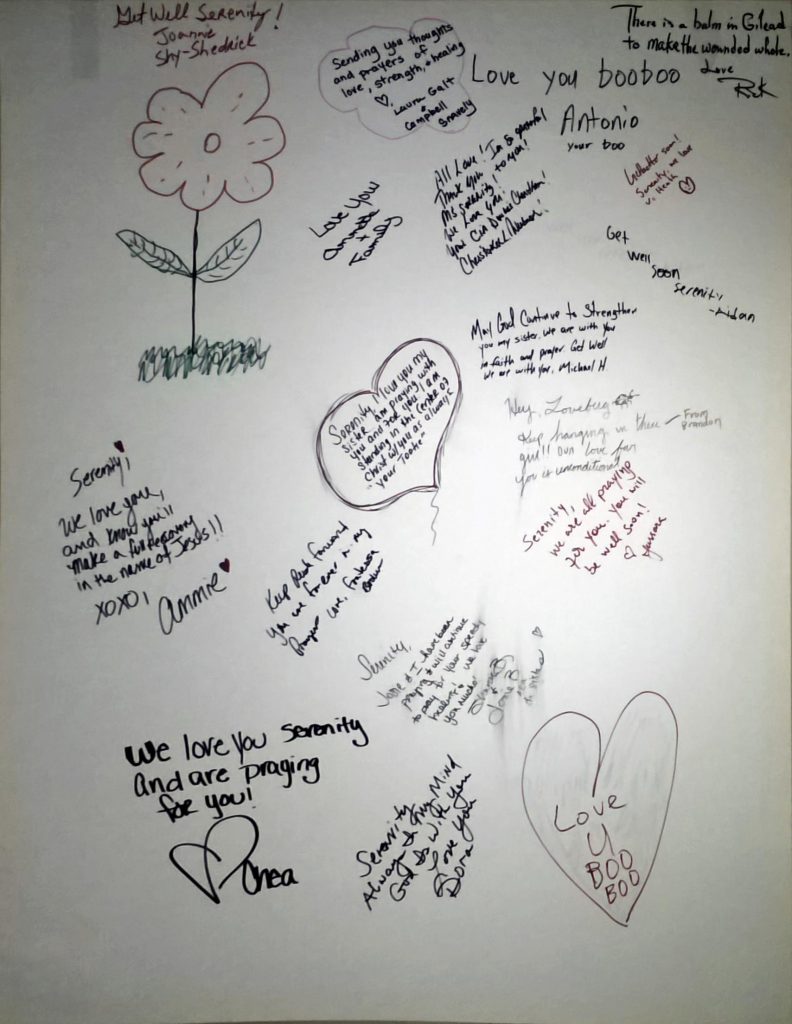 Get Well Serenity!
Joannie
Shy-Shedrick
Sending you thoughts
and prayers of
love, strength, & healing
♡, Laura Galt
&
Campbell
Snavely
There is a balm in Gilead
to make the wounded whole.
Love
Rick
Love you booboo
Antonio
your boo
All Love! I'm so grateful
Thank you
Ms Serenity! to you!
We Love You!
You Can
Love You
Annette
+
Family
Get better soon!
Serenity, we love
u.
Get
Well
Soon
Serenity
-Aidan
May God Continue to Strengthen
you my sister. We are with you
in faith and prayer Get Well
We are with you. Michael H.
Serenity, I love you my
sister. I am praying with
you and for you. I am
standing in the
Christ w/ you as always
"your
Hey, Lovebug
Keep hanging in there
girl!! Our love for
you is unconditional
From
Brandon
Serenity,
We love you,
and know you'll
make a full recovery
in the name of Jesus!!
XOXO,
Annie
Serenity,
we are all praying
for you. You will
be well soon!
♡
Keep Push Forward
you are forever in my
Prayers Love,
Serenity,
& I have been
praying & will continue
to pray for your speedy
We love
you much!
We love you Serenity
and are praying
for you!
♡ Chea
Serenity
Always In My Mind
God Is With You
Love You
Dora
Love
U
BOO
BOO